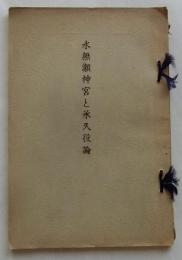 水無瀬神宮と承久役論